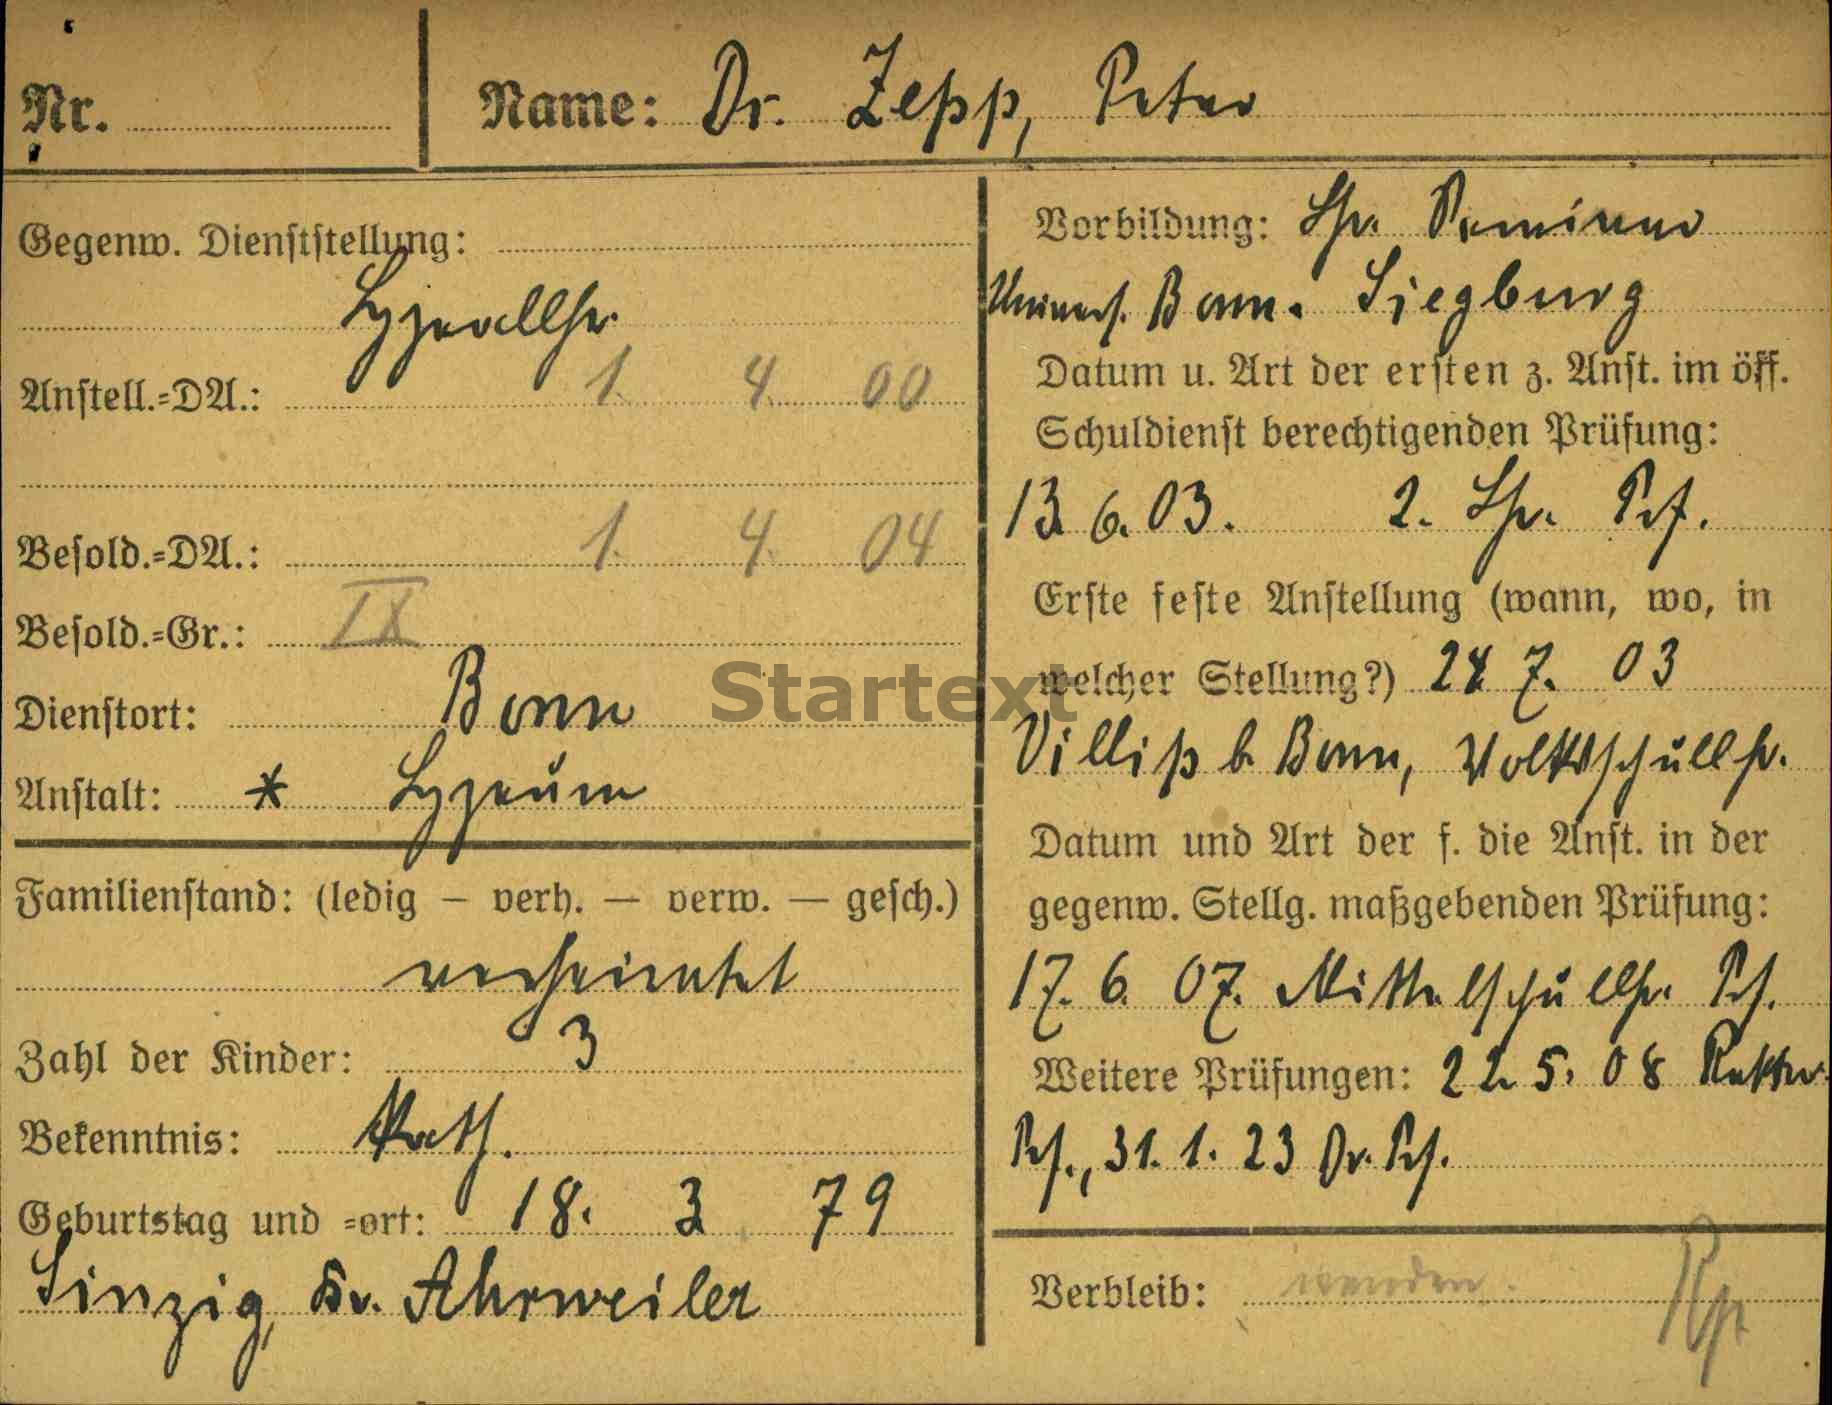 Nr.
Name: Dr. Zepp, Peter
Gegenw. Dienststellung:
Lyzeallhr.
Anstell.=DA.: 1. 4. 00
Besold.=DA.: 1. 4. 04
Besold.=Gr.: IX
Dienstort: Bonn
Anstalt: * Lyzeum
Familienstand: (ledig – verh. – verw. – gesch.)
verheiratet
Zahl der Kinder: 3
Bekenntnis: kath.
Geburtstag und =ort: 18. 3 79
Sinzig, Kr. Ahrweiler
Vorbildung: Lhr. Seminar
Univers. Bonn. Siegburg
Datum u. Art der ersten z. Anst. im öff.
Schuldienst berechtigenden Prüfung:
13. 6. 03. 2. Lhr. Prf.
Erste feste Anstellung (wann, wo, in
welcher Stellung?) 24 7. 03
Villip b. Bonn, Volksschullhr.
Datum und Art der f. die Anst. in der
gegenw. Stellg. maßgebenden Prüfung:
17. 6. 07. Mittelschullhr. Prf.
Weitere Prüfungen: 22. 5. 08 Rektor
Prf., 31. 1. 23 Dr. Prf.
Verbleib: wenden.
Startext